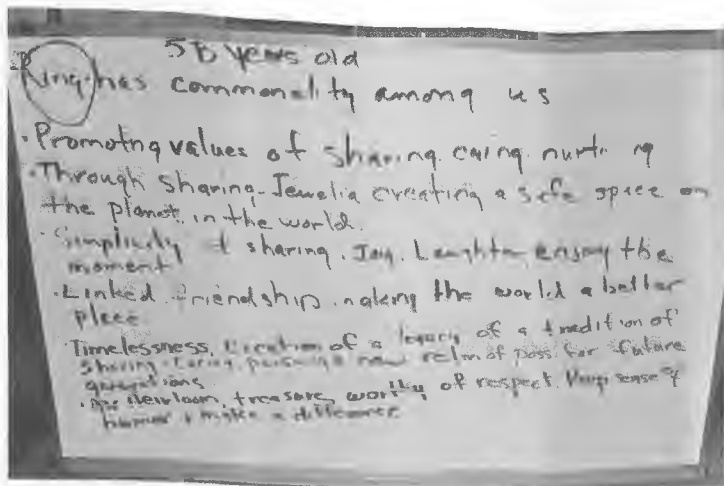 5B years old
Ring has commonality among us
• Promoting values of sharing. caring. nurturing
• Through Sharing - Jewelia creating a safe space on
the planet. in the world.
• Simplicity of sharing. Joy. Laughter enjoy the
moment
• Linked friendship. making the world a better
place
Timelessness. Creation of a legacy of a tradition of
sharing. Caring new relm of poss. for future
generations
• heirloom, treasure, worthy of respect. sense of
humor & make a difference